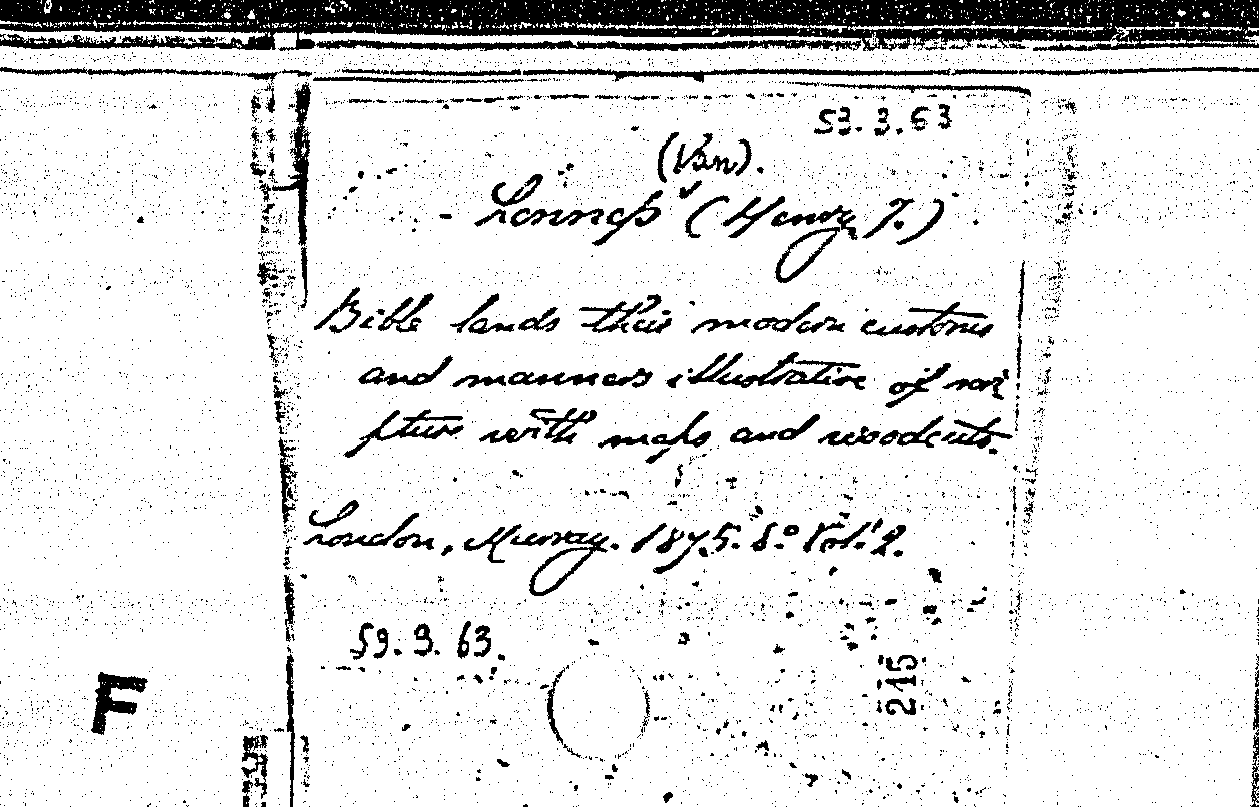 53.3.63
(Van).
- Lennep (Henry J.)
Bible lands their modern customs
and manners illustrative of scri
pture with maps and woodcuts.
London, Murray. 1875. 8.° Vol. 2.
59.9.63.
245
F